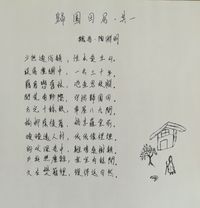 歸園田居·其一
魏晉·陶淵明
少無適俗韻，性本愛丘山。
誤落塵網中，一去三十年。
羈鳥戀舊林，池魚思故淵。
開荒南野際，守拙歸園田。
方宅十餘畝，草屋八九間。
榆柳蔭後簷，桃李羅堂前。
曖曖遠人村，依依墟里煙。
狗吠深巷中，雞鳴桑樹顛。
戶庭無塵雜，虛室有餘閒。
久在樊籠裡，復得返自然。